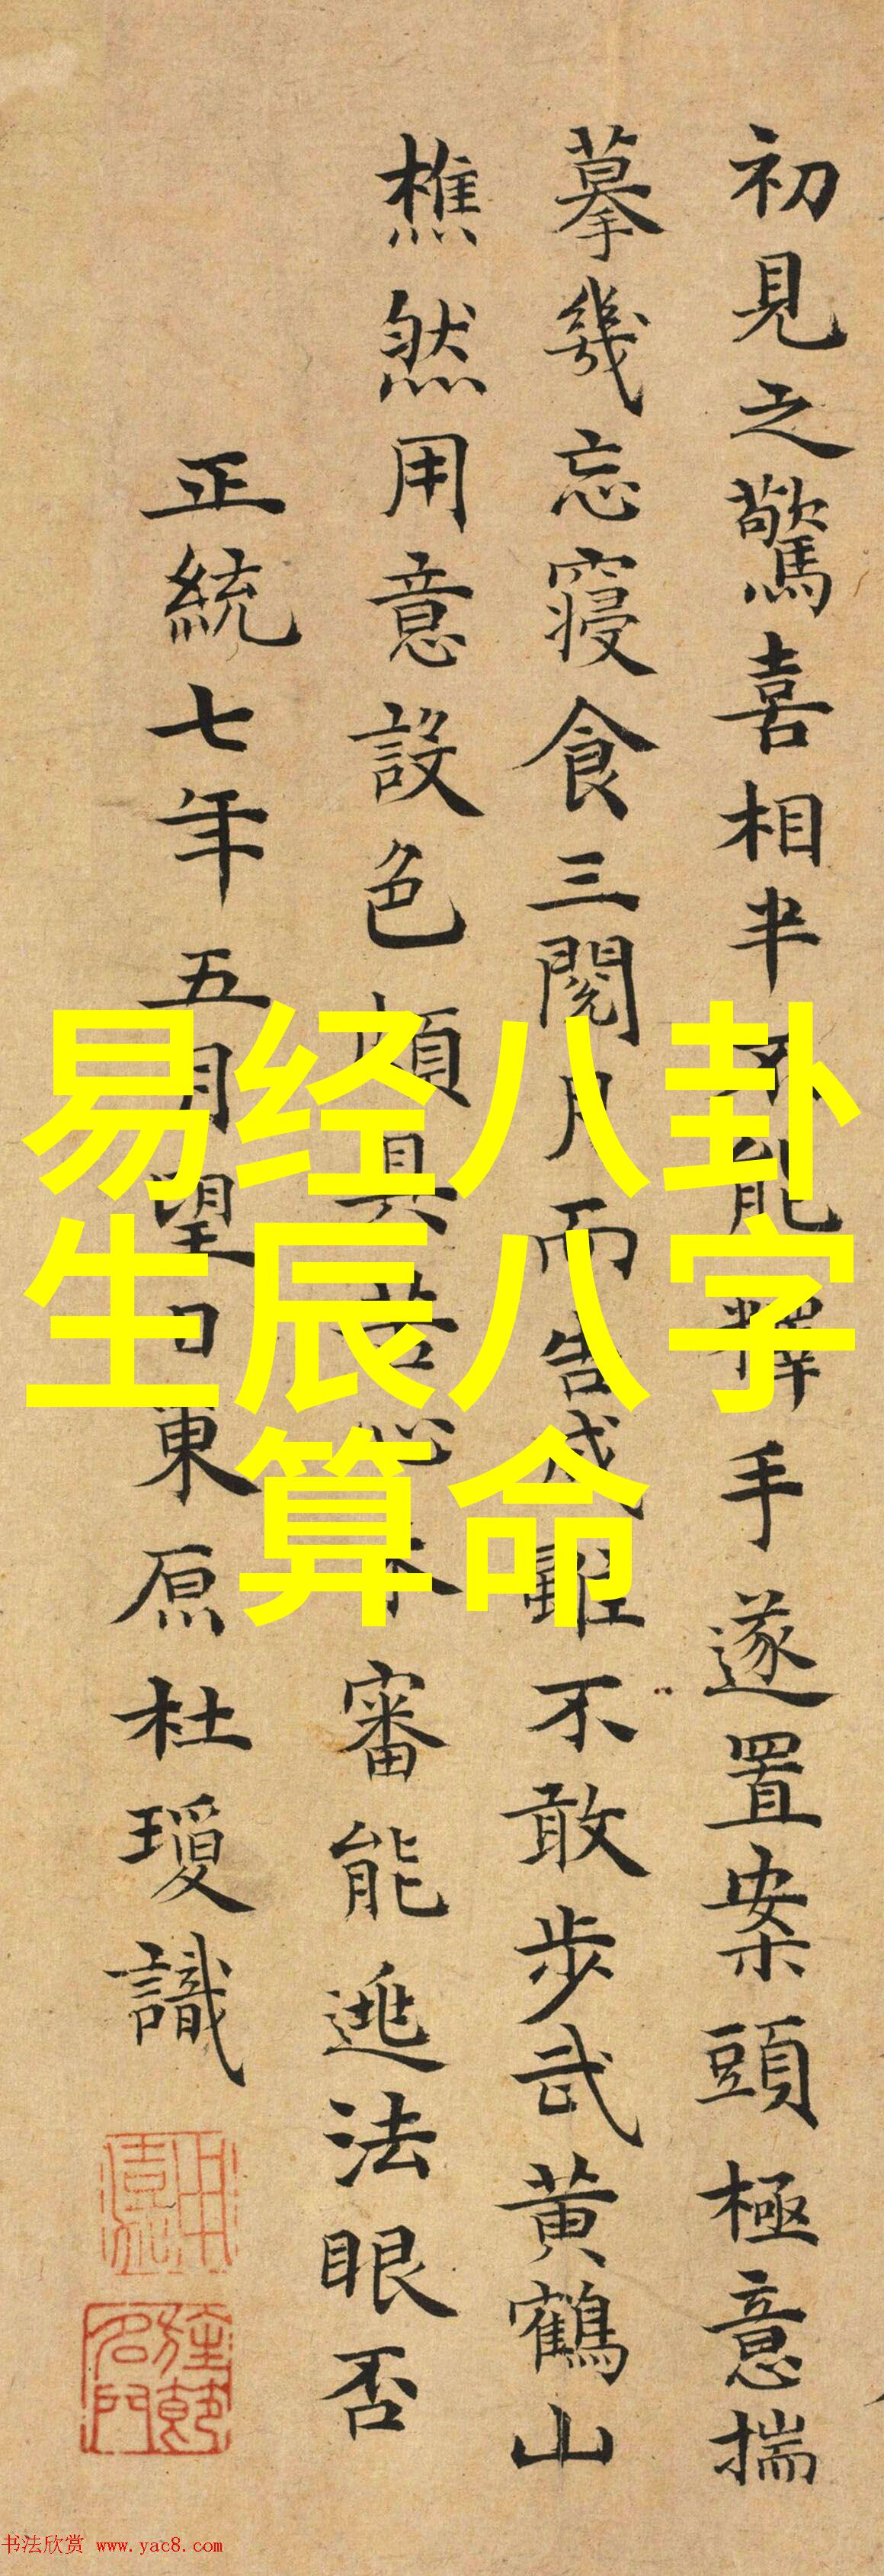 初見之驚喜相半不能釋手遂置案頭極意揣
摹幾忘寢食三閱月而告成雖不敢步武黃鶴山
樵然用意設色頗具苦心未審能逃法眼否
正統七年五月望日東原杜瓊識
易经八卦
生辰八字
算命
书法欣赏 www.yac8.com